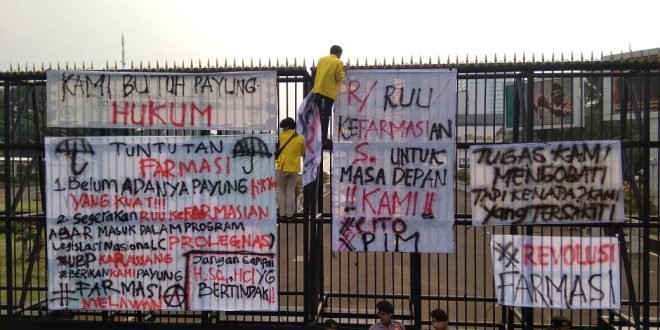 KAMI BUTUH PAYUNG
HUKUM
TUNTUTAN
FARMASI
1. Belum ADANYA PAYUNG HKM
YANG KUAT!!!
2. Segerakan RUU KeFARMASIAN
AGAR MASUK DALAM PROGRAM
Legislasi Nasional C PROLEGNAS)
#UBP KARAWANG
#BERIKAN KAMI PAYUNG
#FARMASI
MELAWAN
Jangan Sampai
H₂SO₄, HCl YG
BERTINDAK!!
R/ RUU
KEFARMASIAN
S. UNTUK
MASA DEPAN
!!KAMI!!
#CITO
#PIM
TUGAS KAMI
MENGOBATI
TAPI KENAPA? KAMI
YANG TERSAKITI
# REVOLUSI
FARMASI